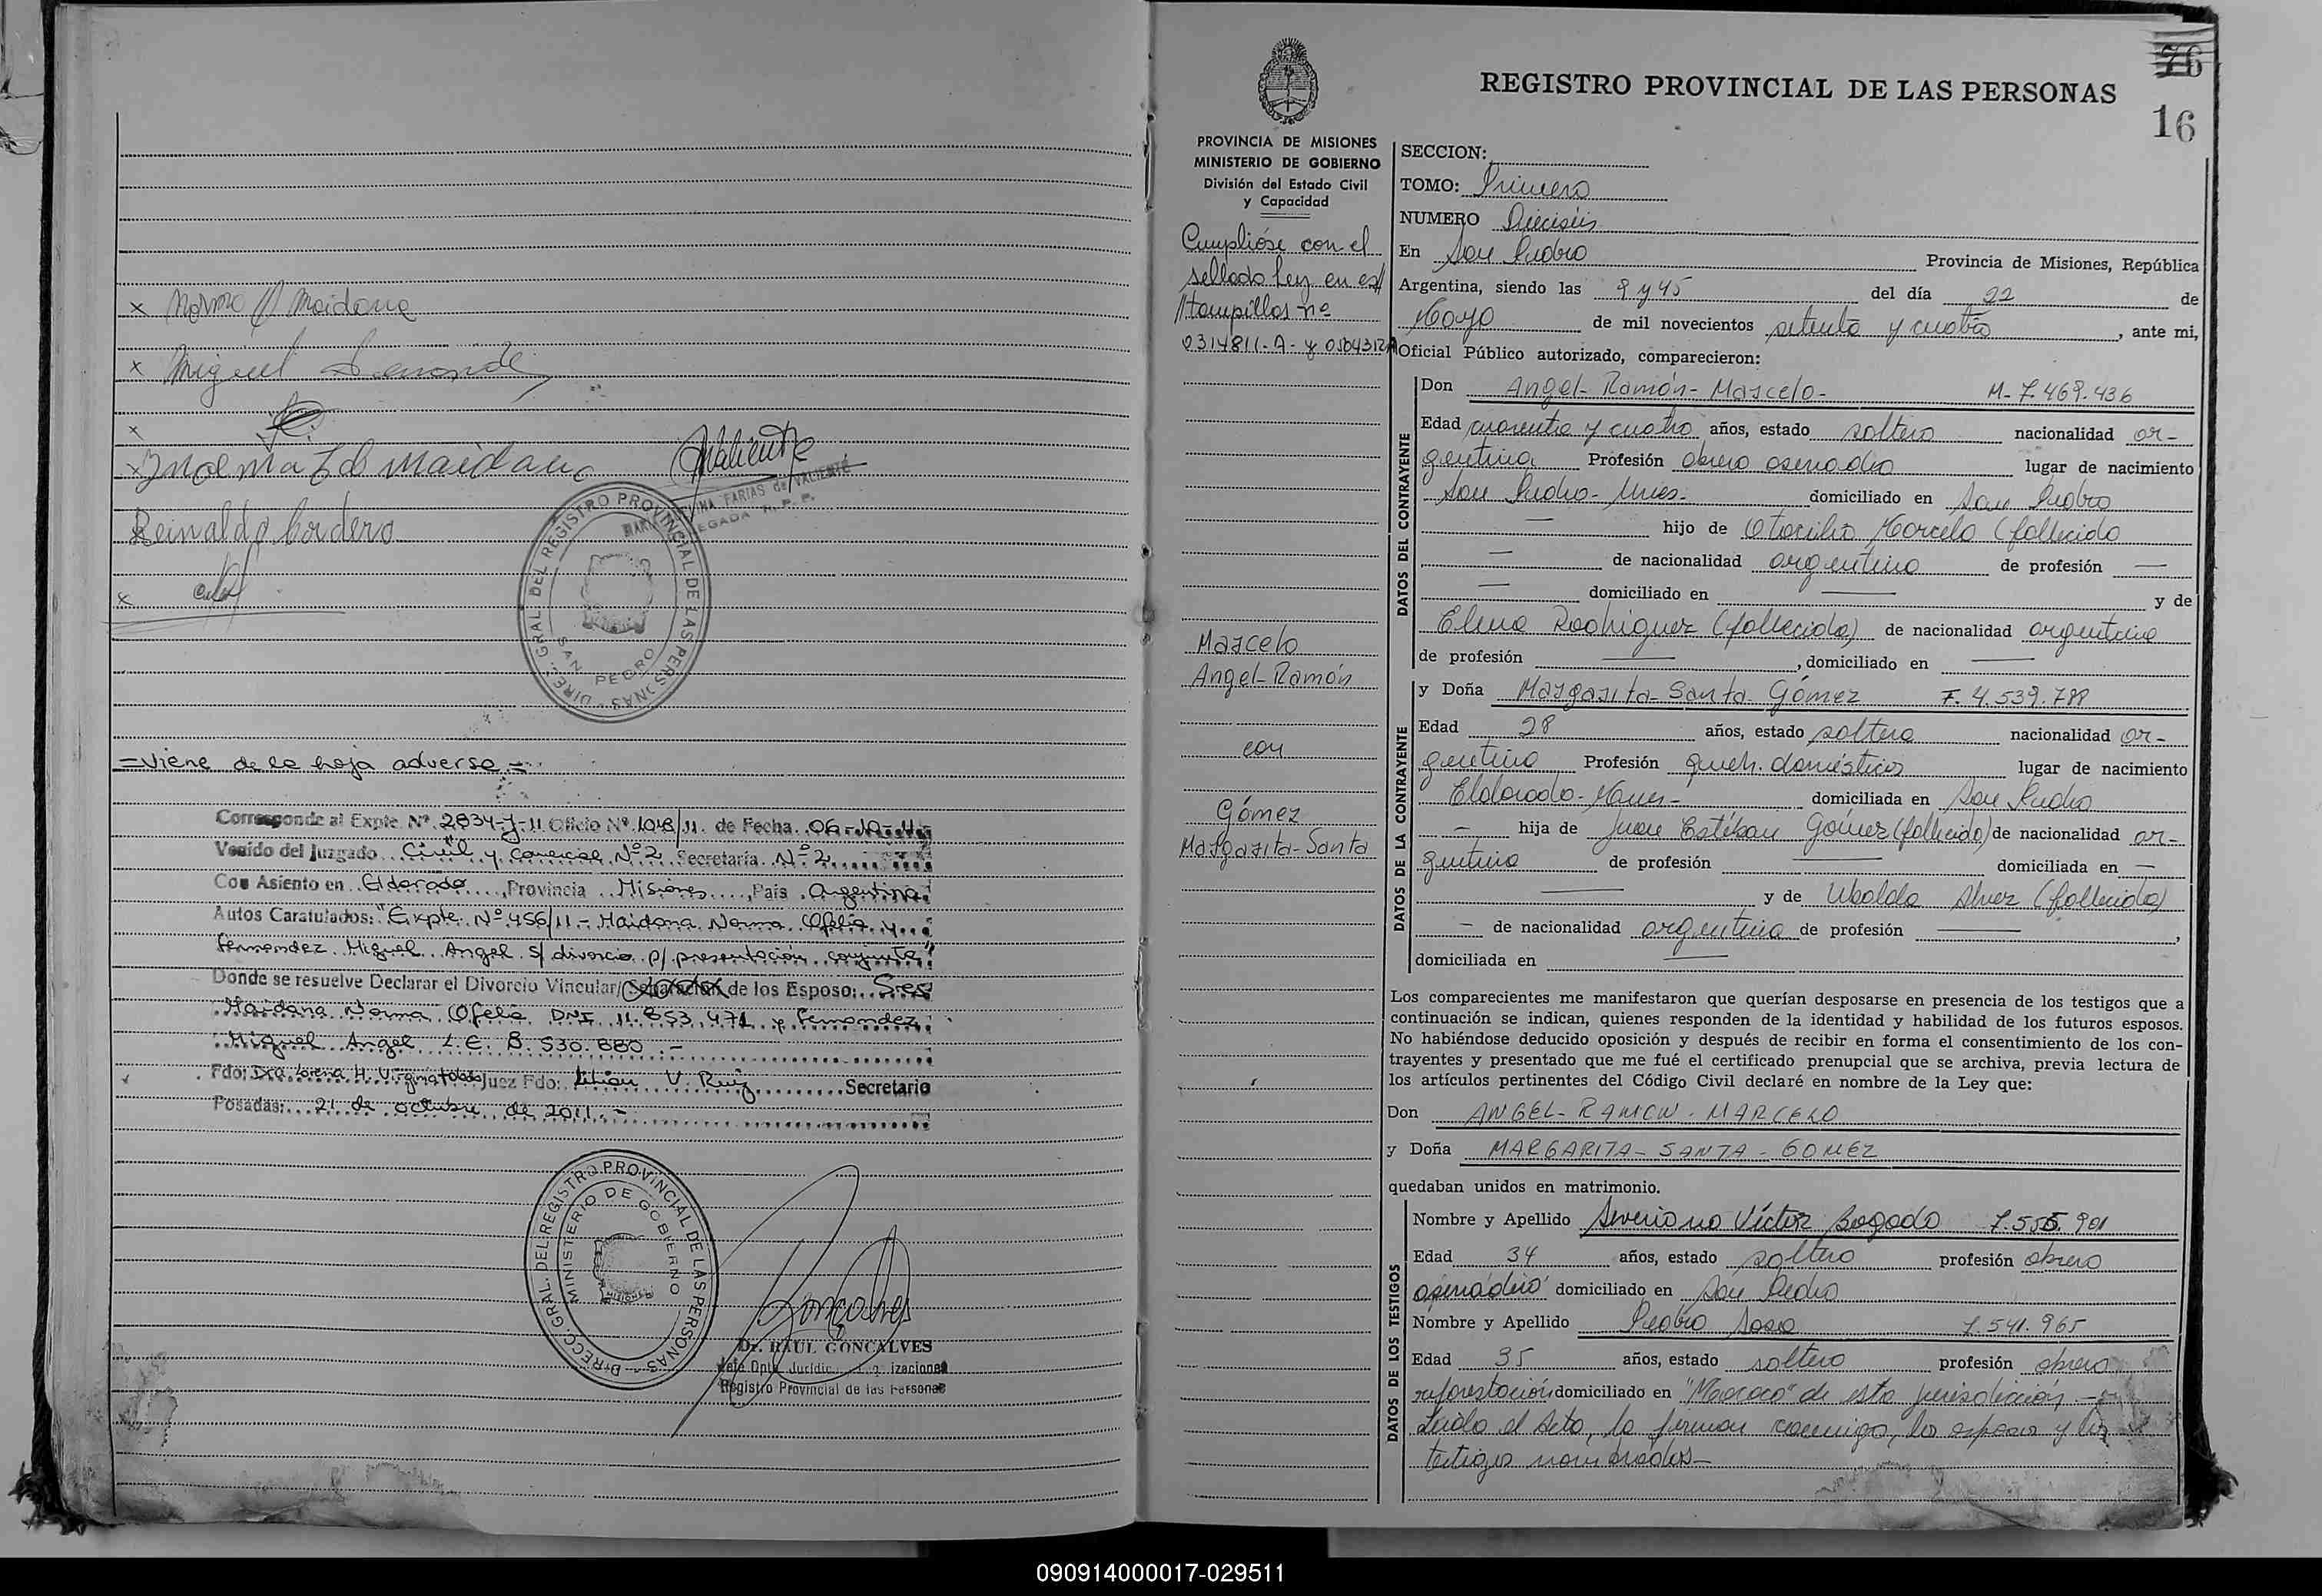 x Norma O Maidana
x Miguel
x
x Zulema Maidana
Valiente
FARIAS de VALIENTE
Reinaldo Cordero
x
DIREC. GRAL. DEL REGISTRO PROVINCIAL DE LAS PERSONAS
SAN PEDRO
=Viene de la hoja adversa=
Corresponde al Expte. Nº 2834-J-11 Oficio Nº 1048/11. de Fecha 06-10-11-
Venido del Juzgado Civil y Comercial Nº 2 Secretaría Nº 2
Con Asiento en Eldorado, Provincia Misiones, País Argentina
Autos Caratulados: "Expte. Nº 456/11 - Maidana Norma Ofelia y
Fernandez Miguel Angel s/ divorcio p/ presentación conjunta"
Donde se resuelve Declarar el Divorcio Vincular/ de los Esposo: Sres
Maidana Norma Ofelia DNI 11.853.471 y Fernandez
Miguel Angel L.E. 8.530.880.-
Fdo: Dra Lorena H. Juez Fdo: Lilian V. Ruiz Secretario
Posadas: 21 de octubre de 2011.-
DIRECC. GRAL. DEL REGISTRO PROVINCIAL DE LAS PERSONAS
MINISTERIO DE GOBIERNO
MISIONES
Dr. RAUL GONCALVES
Registro Provincial de las Personas
76
REGISTRO PROVINCIAL DE LAS PERSONAS
16
PROVINCIA DE MISIONES
MINISTERIO DE GOBIERNO
División del Estado Civil
y Capacidad
Cumplióse con el
sellado Ley en es//
//tampillas nº
0314811-A- y 0504312A
Marcelo
Angel-Ramón
con
Gómez
Margarita-Santa
SECCION:
TOMO: Primero
NUMERO Dieciséis
En San Pedro Provincia de Misiones, República
Argentina, siendo las 9 y 45 del día 22 de
Mayo de mil novecientos setenta y cuatro, ante mi,
Oficial Público autorizado, comparecieron:
DATOS DEL CONTRAYENTE
Don Angel-Ramón-Marcelo- M-7.469.436
Edad cuarenta y cuatro años, estado soltero nacionalidad ar-
gentina Profesión obrero lugar de nacimiento
San Pedro-Mnes- domiciliado en San Pedro
— hijo de Otacilio Marcelo (fallecido
— de nacionalidad argentino de profesión —
— domiciliado en — y de
Elena Rodriguez (fallecida) de nacionalidad argentina
de profesión —, domiciliado en —
DATOS DE LA CONTRAYENTE
y Doña Margarita-Santa-Gómez F.4.539.788
Edad 28 años, estado soltera nacionalidad ar-
gentina Profesión queh. domésticos lugar de nacimiento
Eldorado-Mnes- domiciliada en San Pedro
— hija de Juan Estéban Gómez (fallecido) de nacionalidad ar-
gentina de profesión — domiciliada en —
— y de Ubalda Alvez (fallecida)
— de nacionalidad argentina de profesión —,
domiciliada en —
Los comparecientes me manifestaron que querían desposarse en presencia de los testigos que a
continuación se indican, quienes responden de la identidad y habilidad de los futuros esposos.
No habiéndose deducido oposición y después de recibir en forma el consentimiento de los con-
trayentes y presentado que me fué el certificado prenupcial que se archiva, previa lectura de
los artículos pertinentes del Código Civil declaré en nombre de la Ley que:
Don ANGEL-RAMON-MARCELO
y Doña MARGARITA-SANTA-GOMEZ
quedaban unidos en matrimonio.
DATOS DE LOS TESTIGOS
Nombre y Apellido Severiano Víctor Bogado 7.555.901
Edad 34 años, estado soltero profesión obrero
domiciliado en San Pedro
Nombre y Apellido Pedro Sosa 7.541.965
Edad 35 años, estado soltero profesión obrero
reforestación domiciliado en de esta jurisdicción.-
Leída el Acta, la firman conmigo, los esposos y los
testigos nombrados-
090914000017-029511